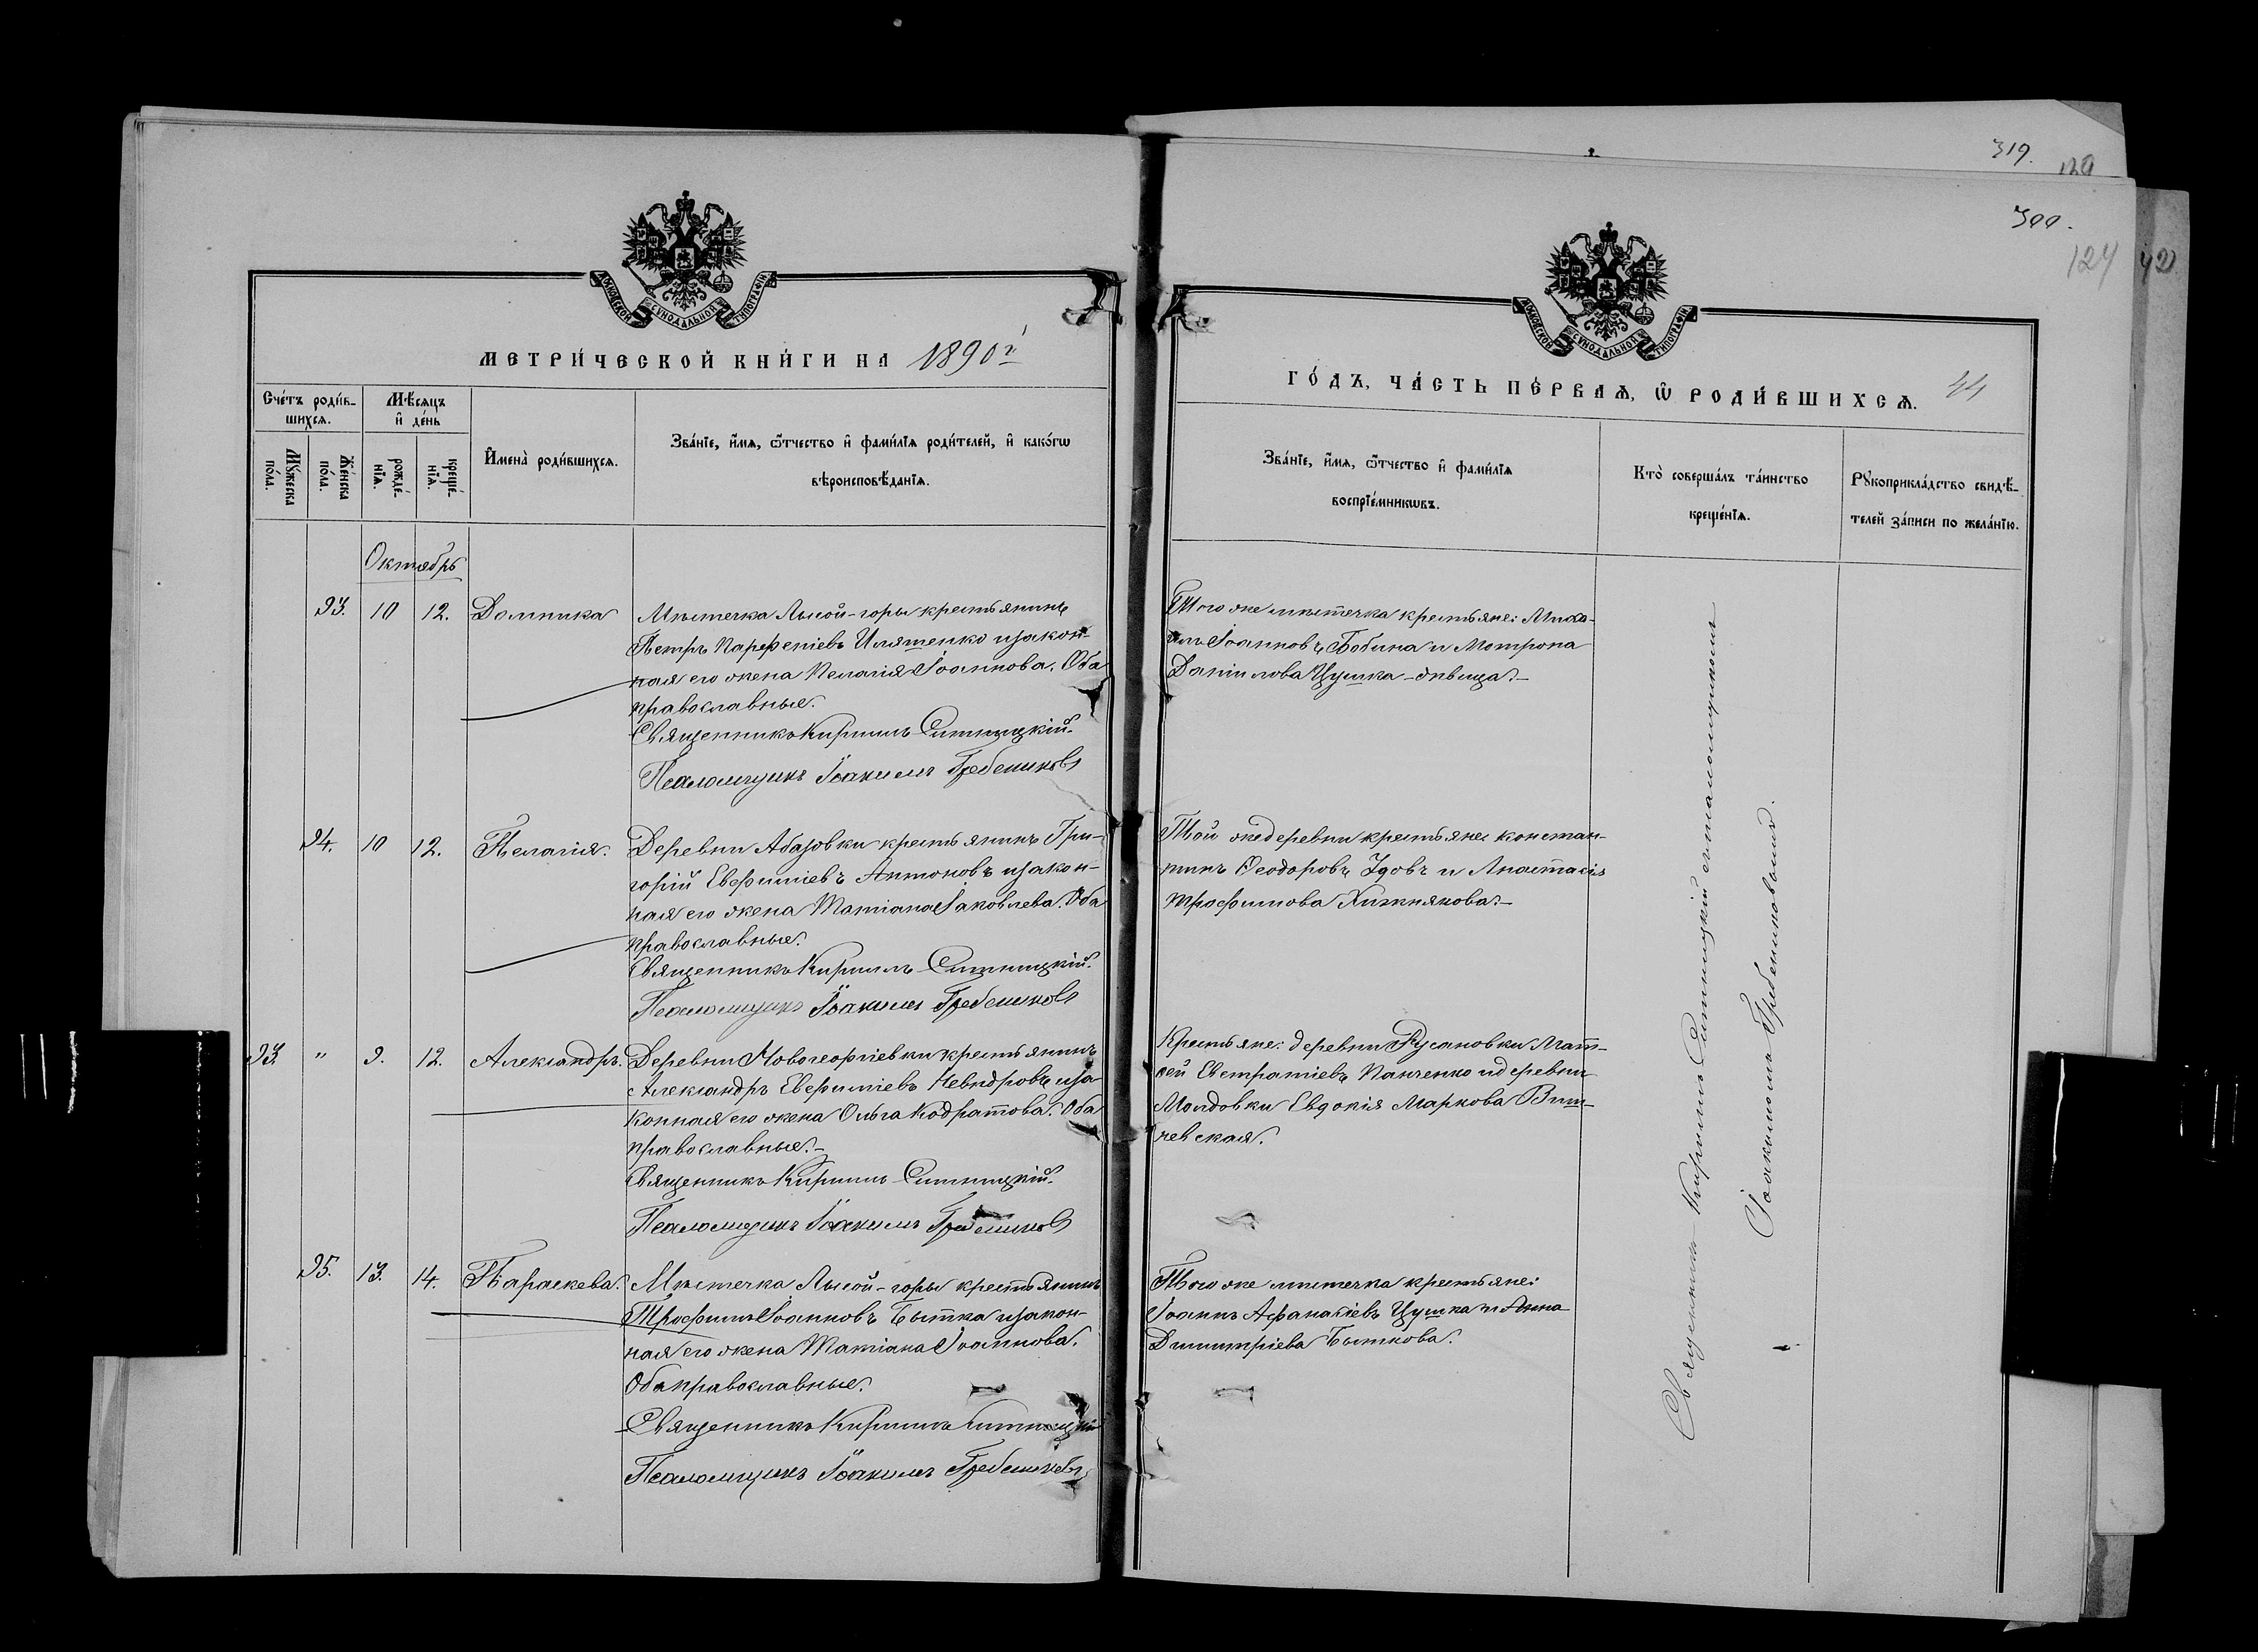 319.
129
300.
124
42
МОСКОВСКОЙ СѴНОДАЛЬНОЙ ТИПОГРАФІИ
МЕТРИ́ЧЕСКОЙ КНИ́ГИ НА 1890й
Сче́тъ роди́в-
шихся.
Мѣ́сяцъ
и де́нь
Мꙋ́жеска
по́ла.
Же́нска
по́ла.
рожде́-
нїѧ.
креще́-
нїѧ.
И҆мена̀ роди́вшихсѧ.
Зва́нїе, и҆́мѧ, ѻ҆́тчество и҆ фами́лїѧ роди́телей, и҆ како́гѡ
вѣроисповѣ́данїѧ.
Октябрь
93. 10 12. Домника
Мѣстечка Лысой-горы крестьянинъ
Петръ Парфеніевъ Иляшенко и закон-
ная его жена Пелагія Іоаннова. Оба
православные.
Священникъ Кириллъ Ситницкій.
Псаломщикъ Іоакимъ Гребениковъ
94. 10 12. Пелагія.
Деревни Абазовки крестьянинъ Гри-
горій Евфиміевъ Антоновъ и закон-
ная его жена Татіана Іаковлева. Оба
православные.
Священникъ Кириллъ Ситницкій.
Псаломщикъ Іоакимъ Гребениковъ
93. " 9. 12. Александръ.
Деревни Новогеоргіевки крестьянинъ
Александръ Евфиміевъ и за-
конная его жена Ольга Кодратова. Оба
православные.-
Священникъ Кириллъ Ситницкій.
Псаломщикъ Іоакимъ Гребениковъ
95. 13. 14. Параскева.
Мѣстечка Лысой-горы крестьянинъ
Трофимъ Іоанновъ Бытка и закон-
ная его жена Татіана Іоаннова.
Оба православные.
Священникъ Кириллъ Ситницкій
Псаломщикъ Іоакимъ Гребениковъ
МОСКОВСКОЙ СѴНОДАЛЬНОЙ ТИПОГРАФІИ
ГО́ДЪ, ЧА́СТЬ ПЕ́РВАѦ, Ѡ҆ РОДИ́ВШИХСѦ. 44
Зва́нїе, и҆́мѧ, ѻ҆́тчество и҆ фами́лїѧ
воспрїе́мникѡвъ.
Кто̀ соверша́лъ та́инство
креще́нїѧ.
Рꙋкоприкла́дство свидѣ́-
телей за́писи по жела́нїю.
Того же мѣстечка крестьяне: Миха-
илъ Іоанновъ Бобина и Мотрона
Даніилова Цушка-дѣвица.-
Той же деревни крестьяне: Констан-
тинъ Ѳеодоровъ и Анастасія
Трофимова Хижнякова.-
Крестьяне: деревни Русановки Мат-
ѳей Евстратіевъ Панченко и деревни
Молдовки Евдокія Маркова Вит-
чевская.
Того же мѣстечка крестьяне:
Іоаннъ Афанасіевъ Цушка и Анна
Димитріева Быткова.
Священникъ Кириллъ Ситницкій съ псаломщикомъ
Іоакимомъ Гребениковымъ.